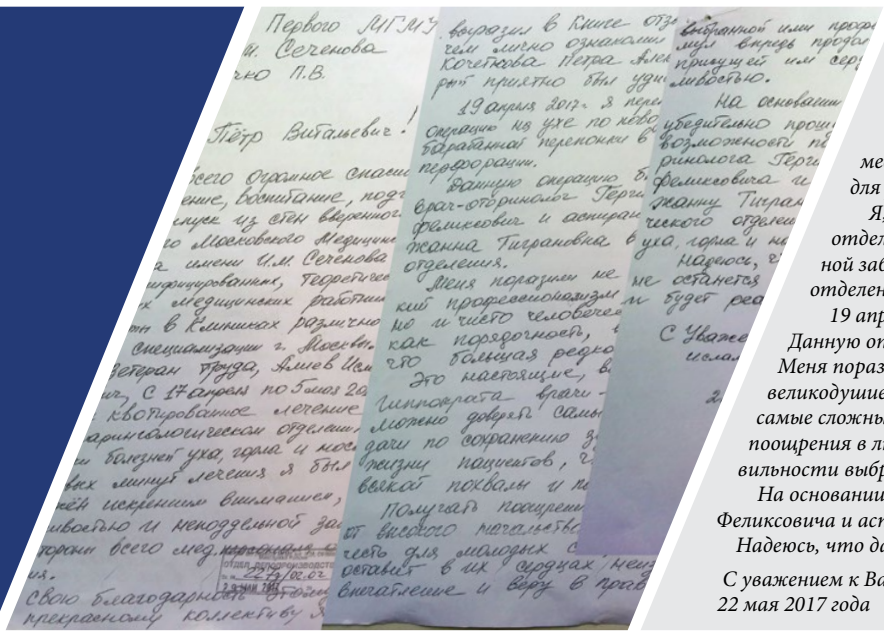 Первого МГМУ
и. Сеченова
чко П.В.
Пётр Витальевич!
всего огромное спаси
ение, воспитание, подг
пуск из стен вверенног
го Московского Медицин
а имени И.М. Сеченова
ифицированных, Теоретичес
х медицинских работни
ты в Клиниках различно
специализации г. Москвы
Ветеран труда, Алиев Исм
ич, С 17 апреля по 5 мая 20
квотированное лечение
арингологическом отделени
и болезней уха, горла и нос
вых минут лечения я был
жён искренним вниманием,
ивостью и неподдельной за
тороны всего мед.персонала о
ия.
свою благодарность этому
прекрасному коллективу я
ОТДЕЛ ДЕЛОПРОИЗВОДСТВА
2273/02.02
29 МАЙ 2017
выразил в Книге отзы
чем лично ознакомил
Кочеткова Петра Алек
рый приятно был уди
19 апреля 2017г. я пере
операцию на ухе по пово
барабанной перепонки в
перфорации.
Данную операцию б
врач-оториналог Герги
Феликсович и аспиран
Жанна Тиграновна в
отделения.
Меня поразили не
кий профессионализм
но и чисто человечес
как порядочность, в
что большая редко
Это настоящие, в
Гиппократа врачи -
можно доверять самы
дачи по сохранению з
жизни пациентов, ч
всякой похвалы и п
Получать поощрени
от высокого начальства
честь для молодых с
оставит в их сердцах неиз
впечатление и веру в прав
выбранной ими профе
мул впредь продол
присущей им серд
ливостью.
На основании
убедительно прошу
возможности по
риналога Герги
Феликсовича и
Жанну Тигран
ческого отделен
уха, горла и но
Надеюсь, ч
не останется
и будет реа
С Уваже
ислам
2
ме
для
Я,
отдел
ной заб
отделен
19 апр
Данную оп
Меня пораз
великодушие
самые сложны
поощрения в ли
вильности выбр
На основании
Феликсовича и асп
Надеюсь, что да
С уважением к Ва
22 мая 2017 года